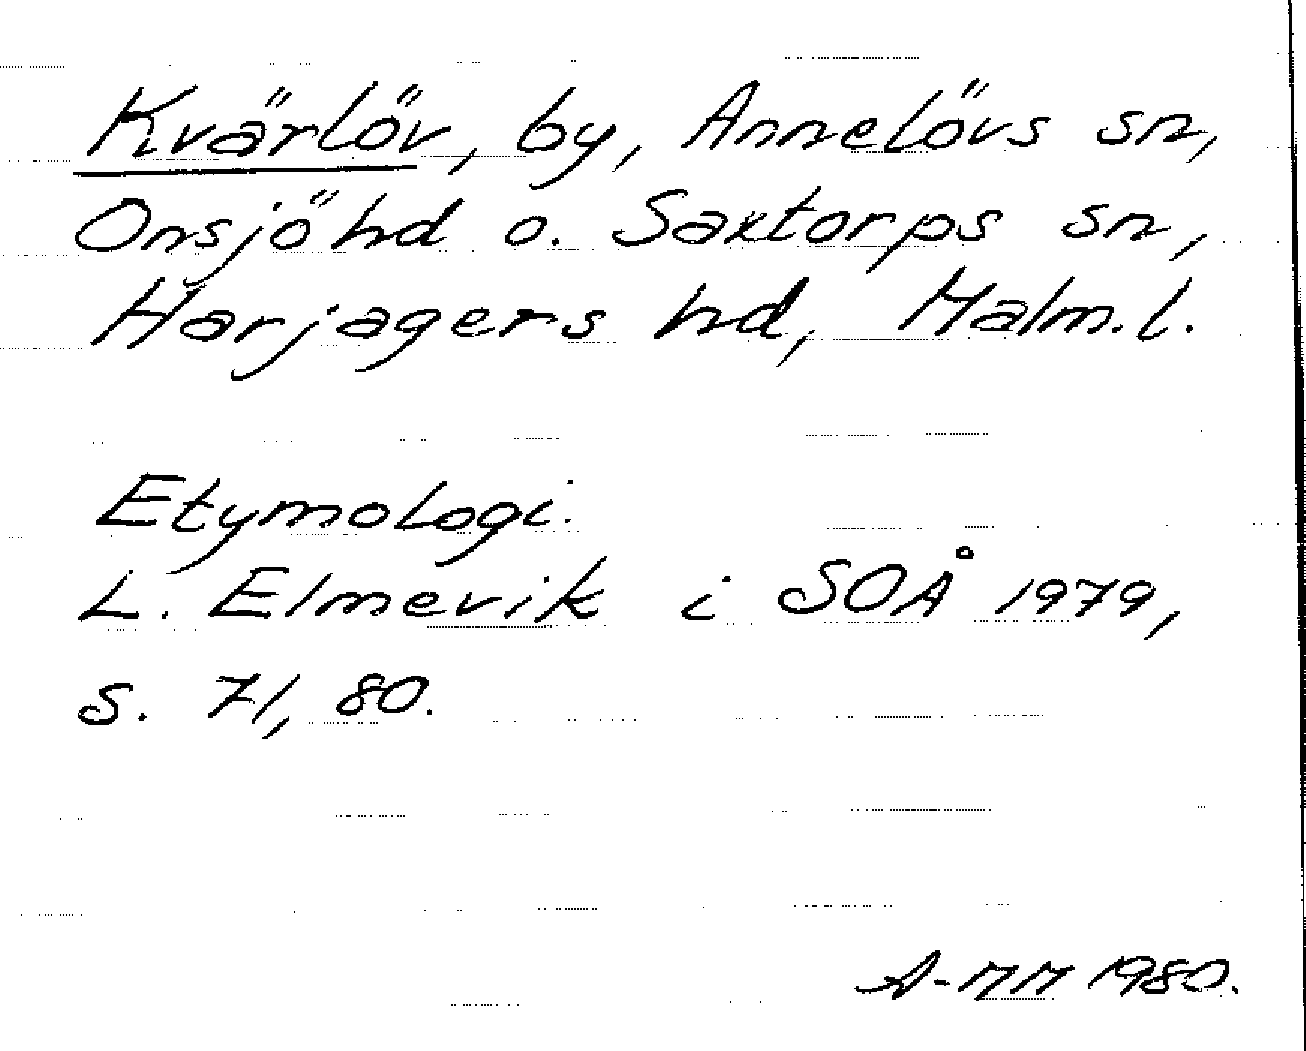 Kvärlöv, by, Annelövs sn,
Onsjö hd o. Saxtorps sn,
Harjagers hd, Malm.l.
Etymologi.
L. Elmevik i SOÅ 1979,
s. 71, 80.
A-MM 1980.